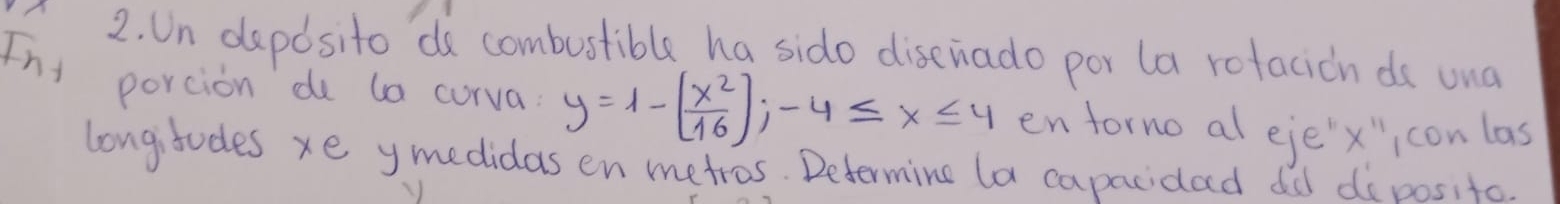 2. Un depósito de combustible ha sido diseñado por la rotación de una
porción de la curva: y = 1 - [x²/16]; -4 ≤ x ≤ 4 en torno al eje "x", con las
longitudes x e y medidas en metros. Determine la capacidad del deposito.
y